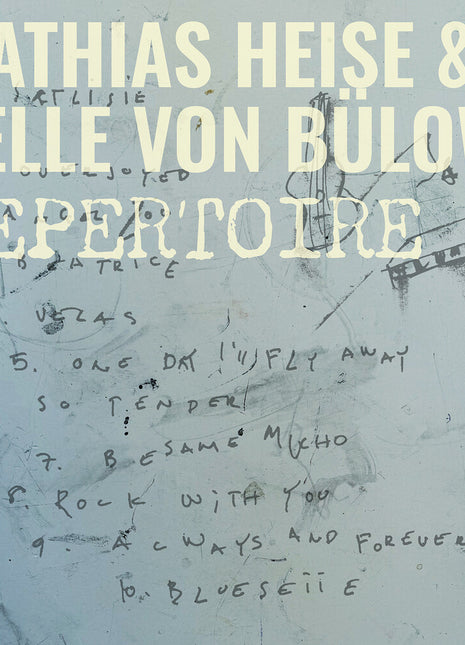 ATHIAS HEISE &
ELLE VON BÜLOW
OVERJOYED
YOU
EPERTOIRE
BEATRICE
VELAS
5. ONE DAY I'll FLY AWAY
SO TENDER
7. BESAME MUCHO
8. ROCK WITH YOU
9. ALWAYS AND FOREVER
10. BLUESETTE